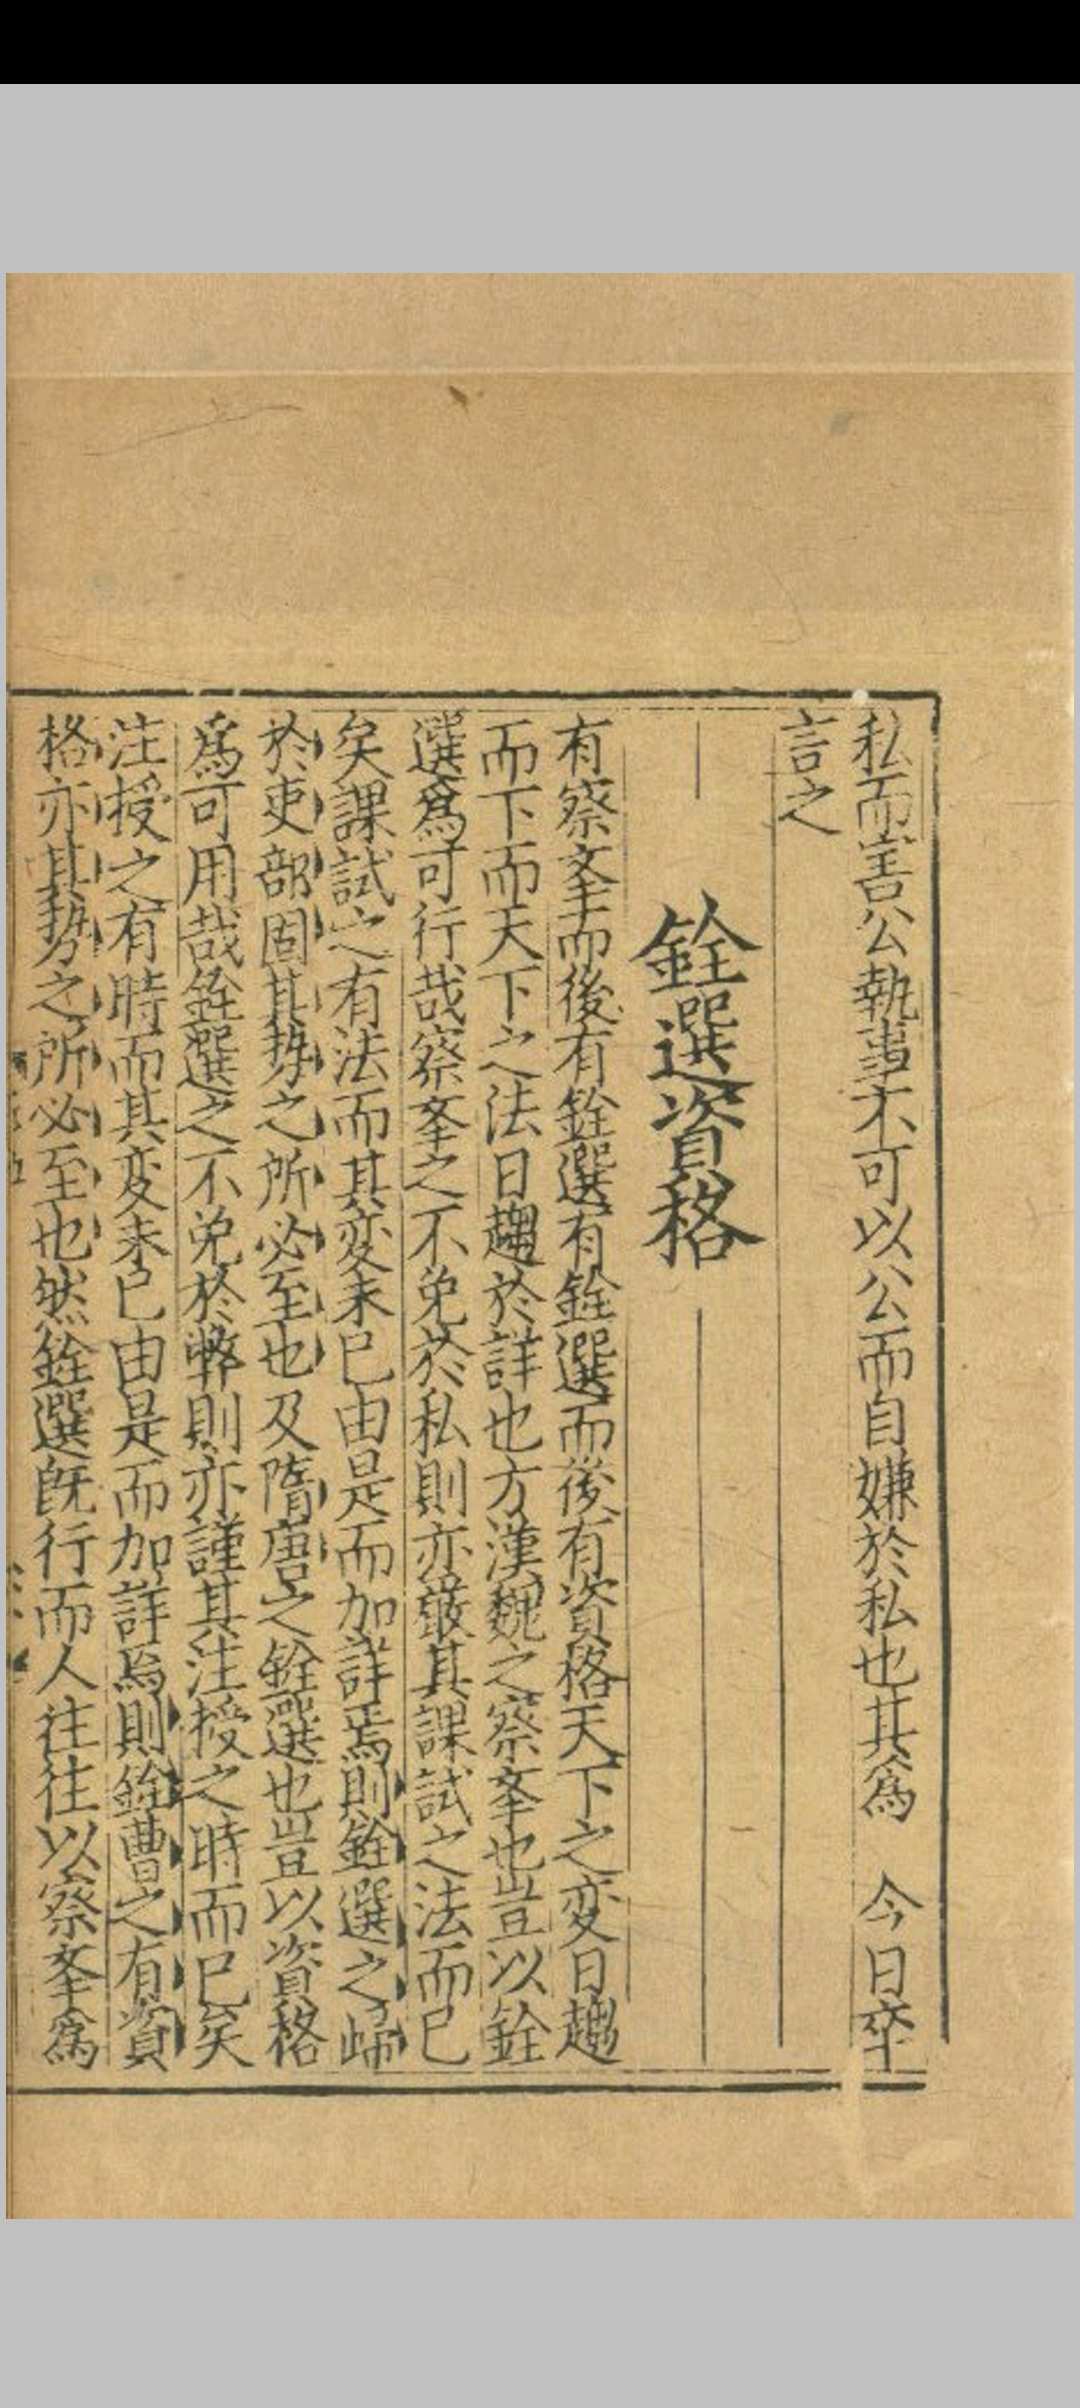 私而害公執事不可以公而自嫌於私也其為　今日卒
言之
銓選資格
有察挙而後有銓選有銓選而後有資格天下之変日趨
而下而天下之法日趨於詳也方漢魏之察挙也豈以銓
選為可行哉察挙之不免於私則亦嚴其課試之法而已
矣課試之有法而其変未已由是而加詳焉則銓選之歸
於吏部固其勢之所必至也及隋唐之銓選也豈以資格
為可用哉銓選之不免於弊則亦謹其注授之時而已矣
注授之有時而其変未已由是而加詳焉則銓曹之有資
格亦其勢之所必至也然銓選既行而人往往以察挙為